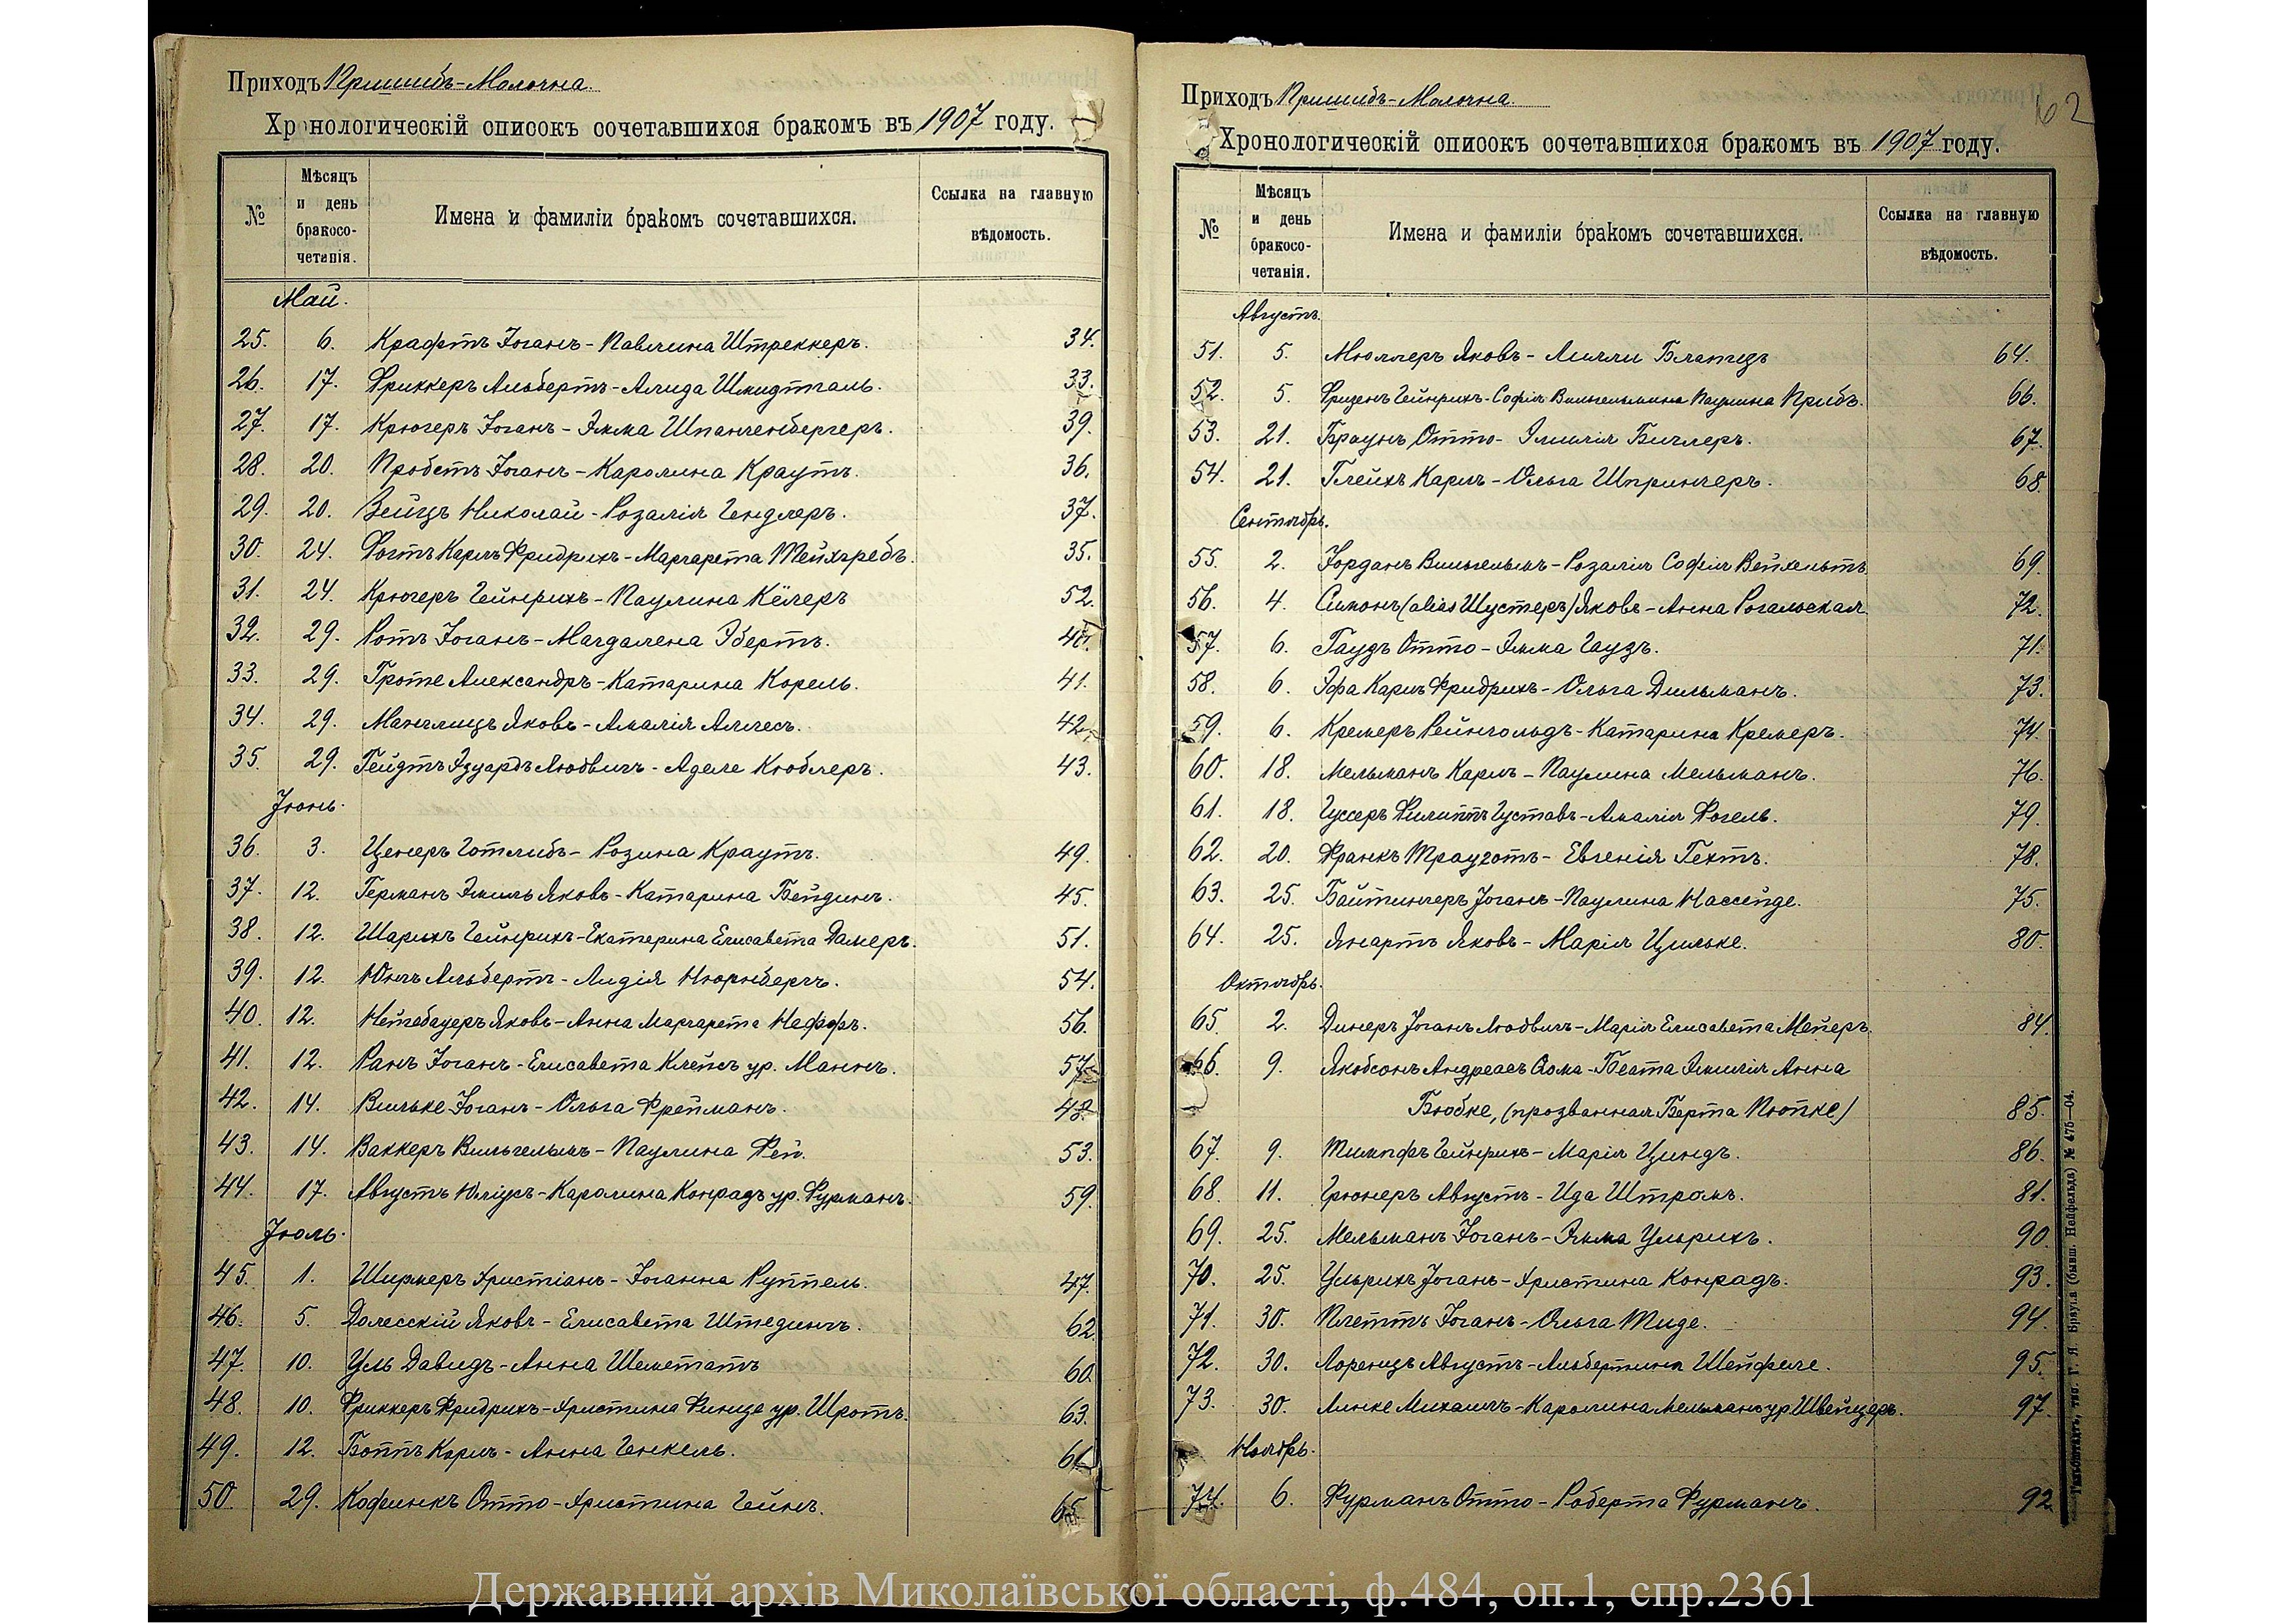 Приходъ Пришибъ-Молочна.
Хронологическій списокъ сочетавшихся бракомъ въ 1907 году.
№
Мѣсяцъ и день бракосо-четанія.
Имена и фамиліи бракомъ сочетавшихся.
Ссылка на главную вѣдомость.
Май.
25. 6. Крафтъ Іоганъ - Павлина Штреккеръ. 34.
26. 17. Фриккеръ Альбертъ - Алида Шмидтгаль. 33.
27. 17. Крюгеръ Іоганъ - Эмма Шпангенбергеръ. 39.
28. 20. Пробстъ Іоганъ - Каролина Краутъ. 36.
29. 20. Зейцъ Николай - Розалія Гендлеръ. 37.
30. 24. Фогтъ Карлъ Фридрихъ - Маргарета Тейхгребъ. 35.
31. 24. Крюгеръ Гейнрихъ - Паулина Кёлеръ 52.
32. 29. Ротъ Іоганъ - Магдалена Эбертъ.
33. 29. Гроте Александръ - Катарина Корель. 41.
34. 29. Манглицъ Яковъ - Амалія Аллесъ. 42.
35. 29. Гейдтъ Эдуардъ Людвигъ - Аделе Кюблеръ. 43.
Іюнь.
36. 3. Ценеръ Готлибъ - Розина Краутъ. 49.
37. 12. Германъ Эмиль Яковъ - Катарина Бейдинъ. 45.
38. 12. Шарихъ Гейнрихъ - Екатерина Елисавета Дамеръ. 51.
39. 12. Юнгъ Альбертъ - Лидія Нюрнбергъ. 54.
40. 12. Нейгебауеръ Яковъ - Анна Маргарета Неффъ. 56.
41. 12. Ранъ Іоганъ - Елисавета Клейсъ ур. Маннъ. 57.
42. 14. Вильке Іоганъ - Ольга Фрейманъ. 48.
43. 14. Ваккеръ Вильгельмъ - Паулина Фей. 53.
44. 17. Августъ Юліусъ - Каролина Конрадъ ур. Фурманъ. 59.
Іюль.
45. 1. Ширмеръ Христіанъ - Іоганна Руппель. 47.
46. 5. Долесскій Яковъ - Елисавета Штедингъ. 62.
47. 10. Уль Давидъ - Анна Шеметатъ 60.
48. 10. Фриккеръ Фридрихъ - Христина Финце ур. Шротъ. 63.
49. 12. Боттъ Карлъ - Анна Генкель. 61.
50. 29. Кофинкъ Отто - Христина Гейнъ. 65.
Приходъ Пришибъ-Молочна.
62
Хронологическій списокъ сочетавшихся бракомъ въ 1907 году.
№
Мѣсяцъ и день бракосо-четанія.
Имена и фамиліи бракомъ сочетавшихся.
Ссылка на главную вѣдомость.
Августъ.
51. 5. Мюллеръ Яковъ - Лилли Блатцъ 64.
52. 5. Фризенъ Гейнрихъ - Софія Вильгельмина Паулина Прибъ. 66.
53. 21. Браунъ Отто - Эмилія Бихлеръ. 67.
54. 21. Блейхъ Карлъ - Ольга Шпрингеръ. 68.
Сентябрь.
55. 2. Іорданъ Вильгельмъ - Розалія Софія Вейхельтъ 69.
56. 4. Симонъ (alias Шустеръ) Яковъ - Анна Рогальская 72.
57. 6. Гаудъ Отто - Эмма Гаудъ. 71.
58. 6. Эфа Карлъ Фридрихъ - Ольга Дильманъ. 73.
59. 6. Кремеръ Рейнгольдъ - Катарина Кремеръ. 74.
60. 18. Мельманъ Карлъ - Паулина Мельманъ. 76.
61. 18. Гуссеръ Филиппъ Густавъ - Амалія Фогель. 79.
62. 20. Франкъ Трауготъ - Евгенія Гехтъ. 78.
63. 25. Байтингеръ Іоганъ - Паулина Нассейде. 75.
64. 25. Янартъ Яковъ - Марія Цильке. 80.
Октябрь.
65. 2. Динеръ Іоганъ Людвигъ - Марія Елисавета Мейеръ. 84.
66. 9. Якобсонъ Андреасъ Ѳома - Беата Эмилія Анна
Бюбке, (прозванная Берта Пюпке) 85.
67. 9. Тимпфъ Гейнрихъ - Марія Циндъ. 86.
68. 11. Грюнеръ Августъ - Ида Штромъ. 81.
69. 25. Мельманъ Іоганъ - Эмма Ульрихъ. 90.
70. 25. Ульрихъ Іоганъ - Христина Конрадъ. 93.
71. 30. Плеттъ Іоганъ - Ольга Тиде. 94.
72. 30. Лоренцъ Августъ - Альбертина Шейфеле. 95.
73. 30. Линке Михаилъ - Каролина Мельманъ ур Швейцеръ. 97.
Ноябрь.
74. 6. Фурманъ Отто - Роберта Фурманъ. 92
Г. Я. Брауга (бывш. Найфельдъ) № 475—04.
Державний архів Миколаївської області, ф.484, оп.1, спр.2361